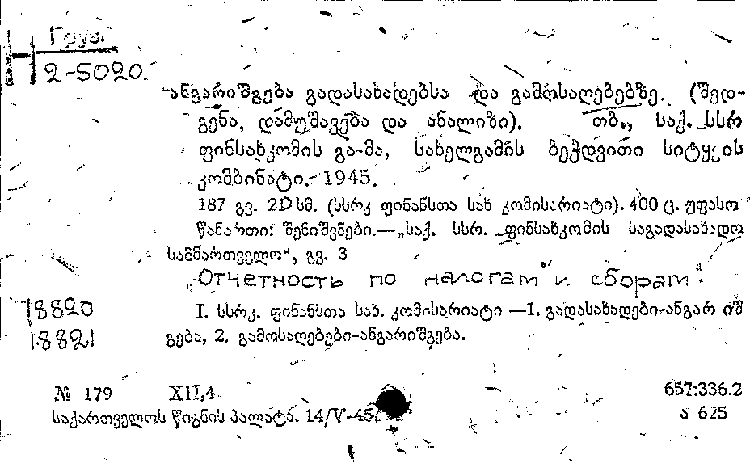 Груз.
2-5020.
ანგარიშგება გადასახადებსა და გამოსაღებებზე. (შედ-
გენა, დამუშავება და ანალიზი). თბ., საქ. სსრ
ფინსახკომის გა-მა, სახელგამის ბეჭდვითი სიტყვის
კომბინატი. 1945.
187 გვ. 20 სმ. (სსრკ ფინანსთა სახ კომისარიატი). 400 ც. უფასო
წანართი: შენიშვნები.—„საქ. სსრ. ფინსახკომის საგადასახადო
სამმართველო", გვ. 3
„Отчетность по налогам и сборам".
I. სსრკ. ფინანსთა სახ. კომისარიატი —1. გადასახადები-ანგარიშ
გება, 2. გამოსაღებები-ანგარიშგება.
18820
18821
№ 179 XII,4 657:336.2
საქართველოს წიგნის პალატა. 14/V-45 ა 625